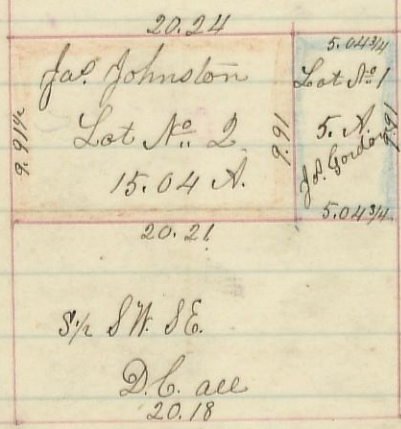 20.24
9.91½
Jas. Johnston
Lot No. 2
15.04 A.
9.91
20.21
5.04¾
Lot No. 1
5. A.
Js. Gordon
9.91
5.04¾
S½ SW. SE.
D.C. all
20.18